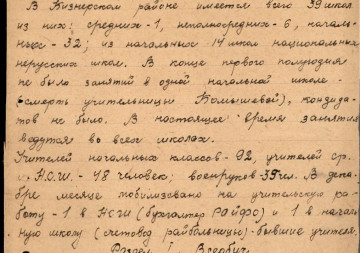 В Визнерском районе имеется всего 39 школ
из них: средних - 1, неполносредних - 6, началь-
ных - 32; из начальных 14 школ национальных
нерусских школ. В конце первого полугодия
не было занятий в одной начальной школе -
(смерть учительницы Колышевой), кондида-
тов не было. В настоящее время занятия
ведутся во всех школах.
Учителей начальных классов - 92, учителей ср.
и Н.С.Ш. - 48 человек; военруков - чел. В дека-
бре месяце мобилизовано на учительскую ра-
боту - 1 в НСШ (бухгалтер РАЙФО) и 1 в началь-
ную школу (счетовод райбольницы) - бывшие учителя.
Раздел I. Всеобуч.